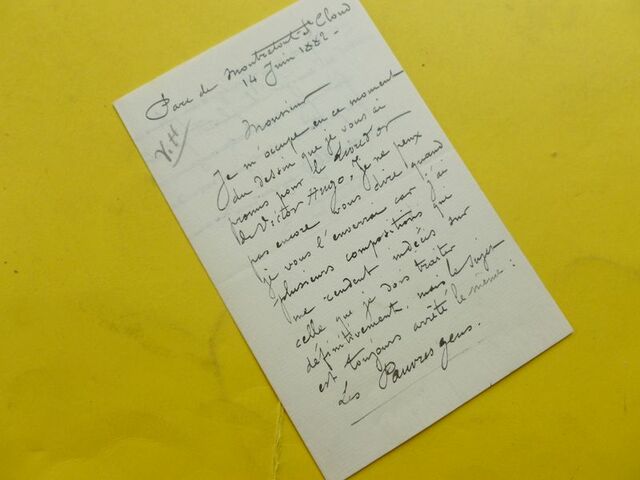 Parc de Montretout St Cloud
14 Juin 1882 -
V.H
Monsieur
Je m'occupe en ce moment
du dessin que je vous ai
promis pour le Livre d'or
de Victor Hugo, je ne peux
pas encore vous dire quand
je vous l'enverrai car j'ai
plusieurs compositions qui
me rendent indécis sur
celle que je dois traiter
définitivement, mais le sujet
est toujours arrêté le même :
Les Pauvres gens.